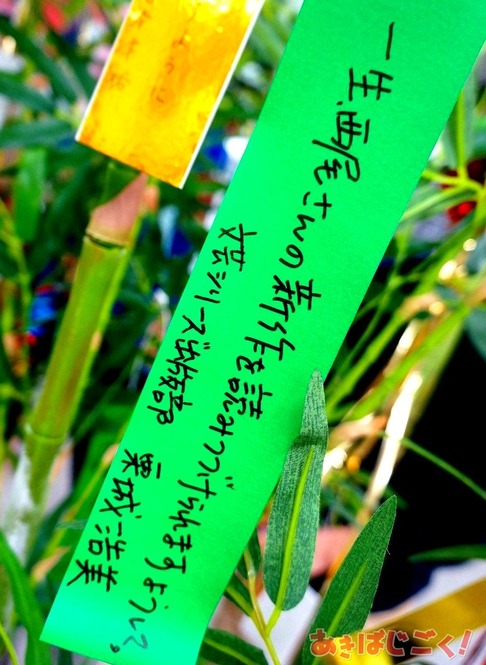 一生西尾さんの新作を読みつづけられますように。
文芸シリーズ出版部 栗城浩美
あきばじごく!